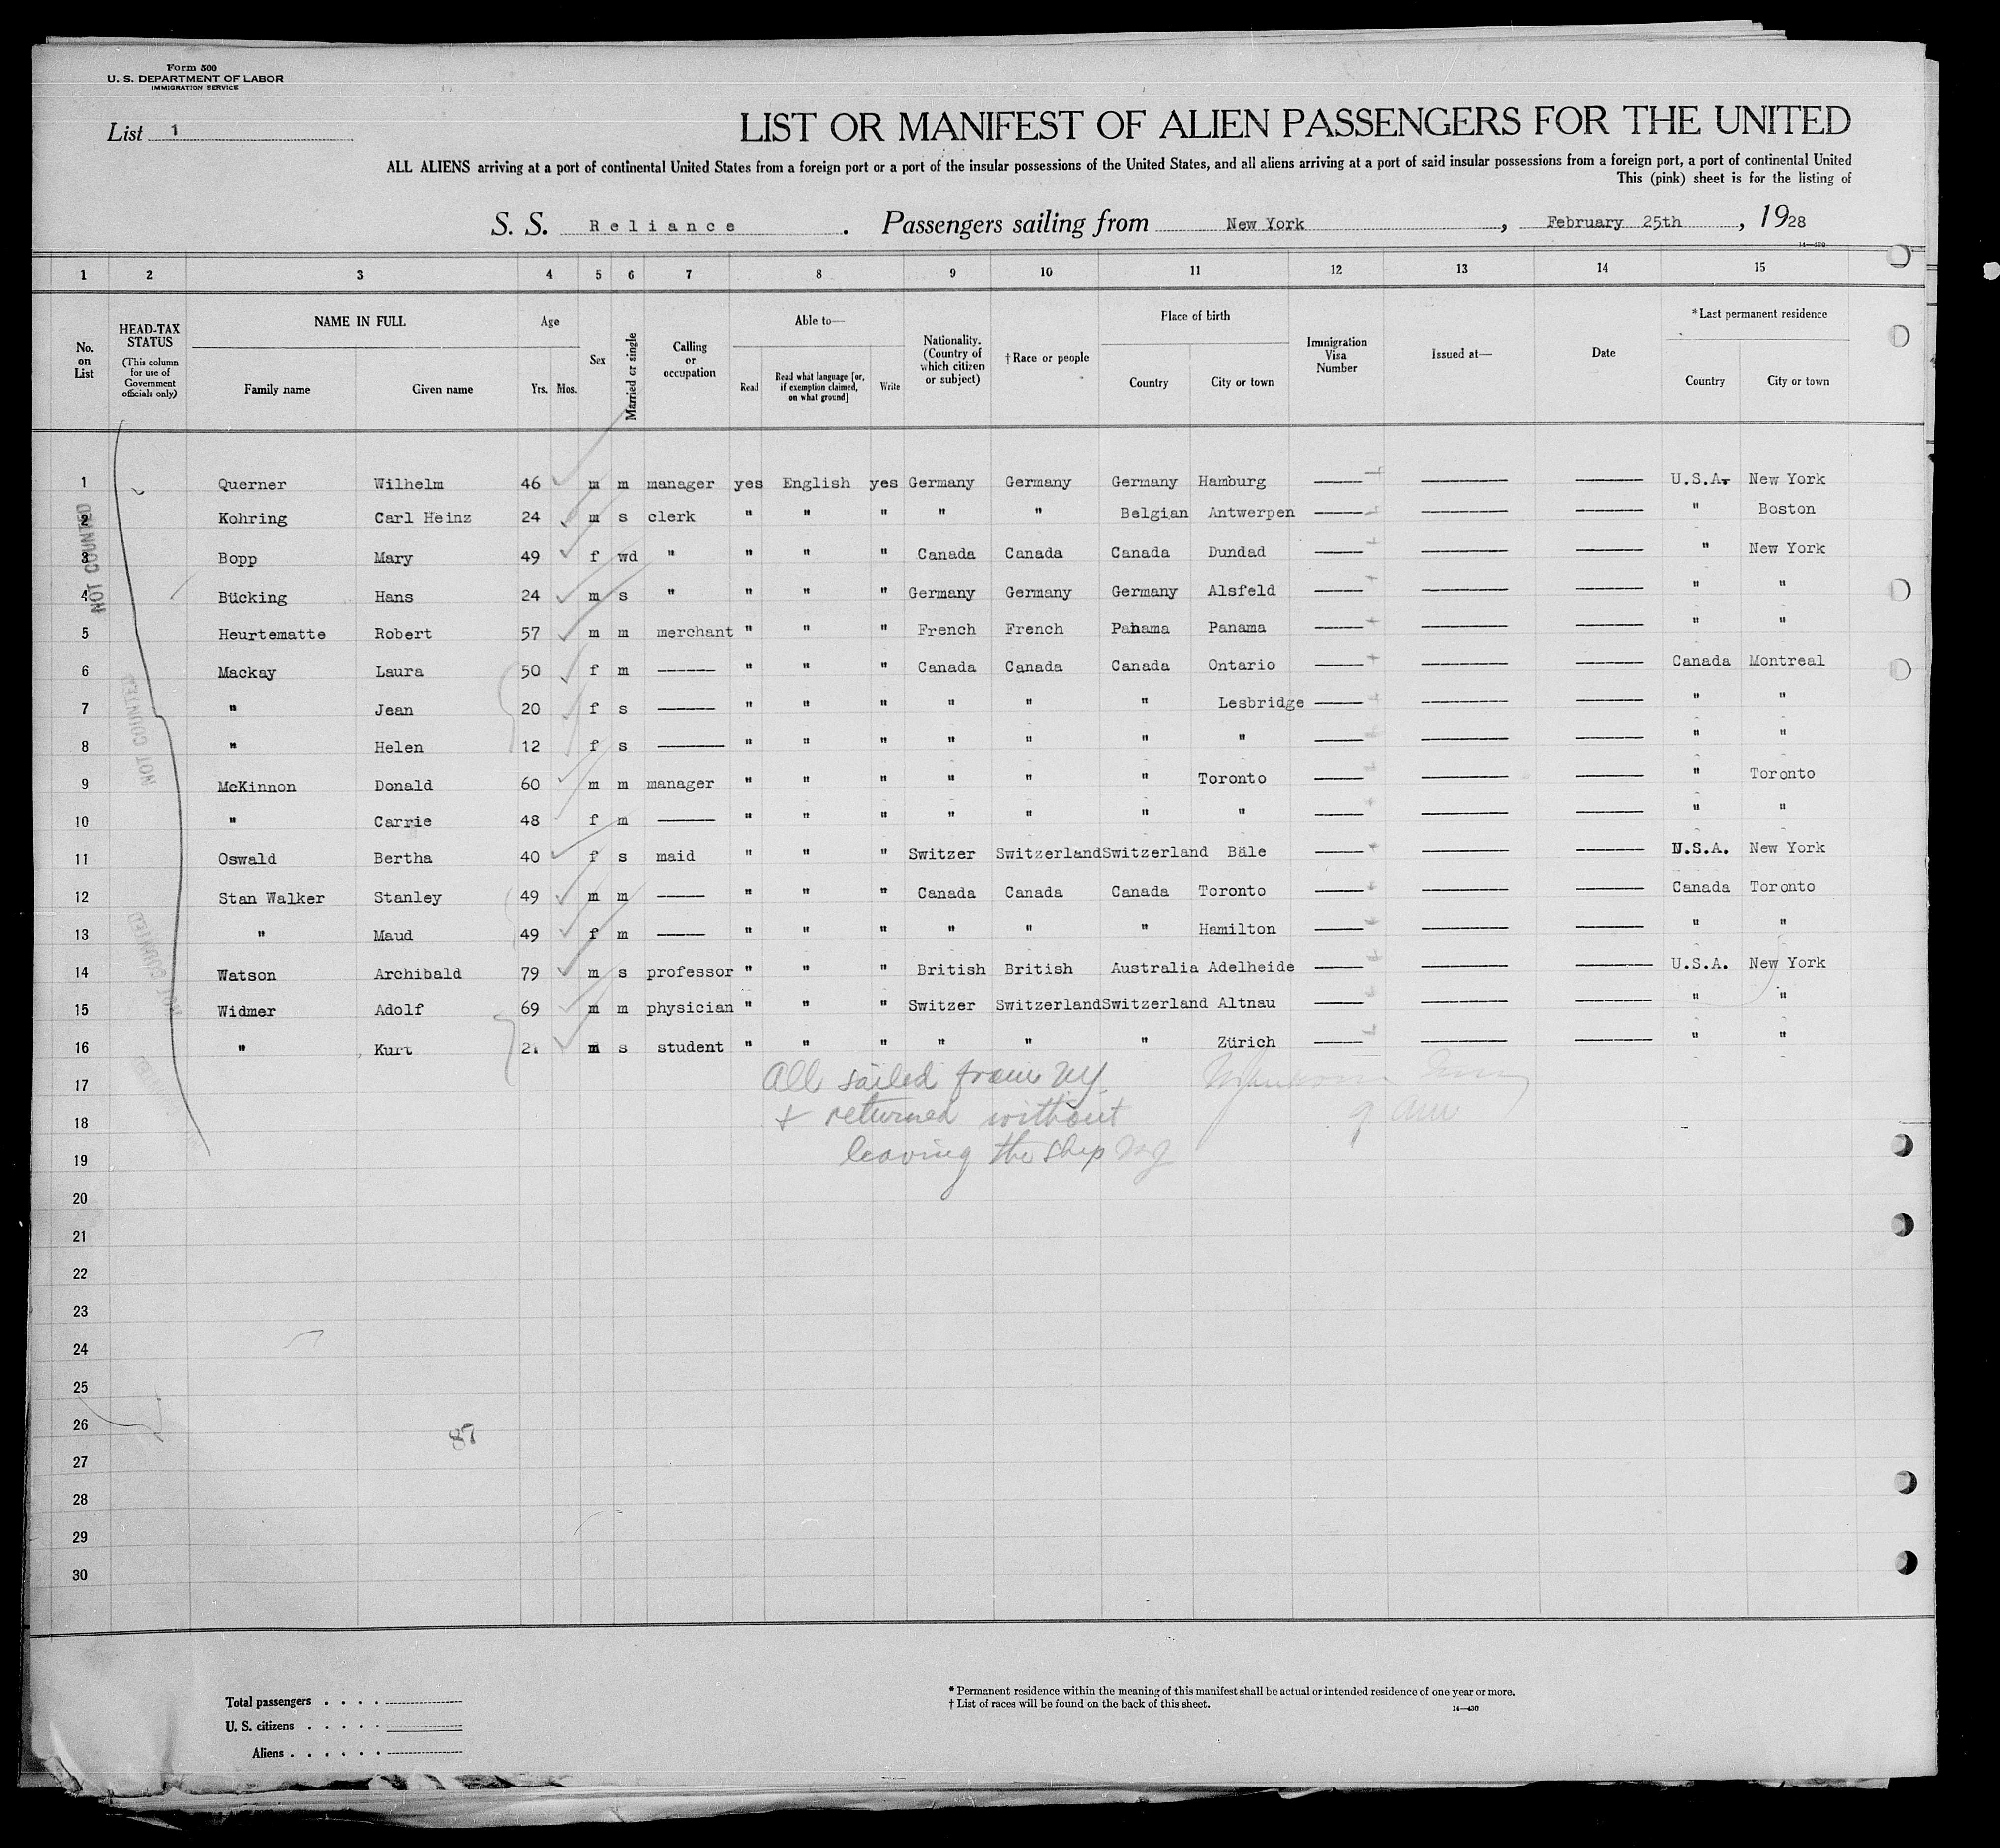 Form 500
U. S. DEPARTMENT OF LABOR
IMMIGRATION SERVICE
List 1
LIST OR MANIFEST OF ALIEN PASSENGERS FOR THE UNITED
ALL ALIENS arriving at a port of continental United States from a foreign port or a port of the insular possessions of the United States, and all aliens arriving at a port of said insular possessions from a foreign port, a port of continental United
This (pink) sheet is for the listing of
S. S. Reliance . Passengers sailing from New York , February 25th , 1928
14—430
1 2 3 4 5 6 7 8 9 10 11 12 13 14 15
No. on List
HEAD-TAX STATUS (This column for use of Government officials only)
NAME IN FULL
Family name Given name
Age
Yrs. Mos.
Sex
Married or single
Calling or occupation
Able to—
Read Read what language [or, if exemption claimed, on what ground] Write
Nationality. (Country of which citizen or subject)
†Race or people
Place of birth
Country City or town
Immigration Visa Number
Issued at—
Date
*Last permanent residence
Country City or town
1 Querner Wilhelm 46 m m manager yes English yes Germany Germany Germany Hamburg U.S.A. New York
2 Kohring Carl Heinz 24 m s clerk " " " " " Belgian Antwerpen " Boston
3 Bopp Mary 49 f wd " " " " Canada Canada Canada Dundad " New York
4 Bücking Hans 24 m s " " " " Germany Germany Germany Alsfeld " "
5 Heurtematte Robert 57 m m merchant " " " French French Panama Panama " "
6 Mackay Laura 50 f m " " " Canada Canada Canada Ontario Canada Montreal
7 " Jean 20 f s " " " " " " Lesbridge " "
8 " Helen 12 f s " " " " " " " " "
9 McKinnon Donald 60 m m manager " " " " " " Toronto " Toronto
10 " Carrie 48 f m " " " " " " " " "
11 Oswald Bertha 40 f s maid " " " Switzer Switzerland Switzerland Bäle U.S.A. New York
12 Stan Walker Stanley 49 m m " " " Canada Canada Canada Toronto Canada Toronto
13 " Maud 49 f m " " " " " " Hamilton " "
14 Watson Archibald 79 m s professor " " " British British Australia Adelheide U.S.A. New York
15 Widmer Adolf 69 m m physician " " " Switzer Switzerland Switzerland Altnau " "
16 " Kurt 21 m s student " " " " " " Zürich " "
17 All sailed from NY.
18 & returned without
19 leaving the ship
20
21
22
23
24
25
26
87
27
28
29
30
NOT COUNTED
NOT COUNTED
NOT COUNTED
Total passengers
U. S. citizens
Aliens
* Permanent residence within the meaning of this manifest shall be actual or intended residence of one year or more.
† List of races will be found on the back of this sheet.
14—430